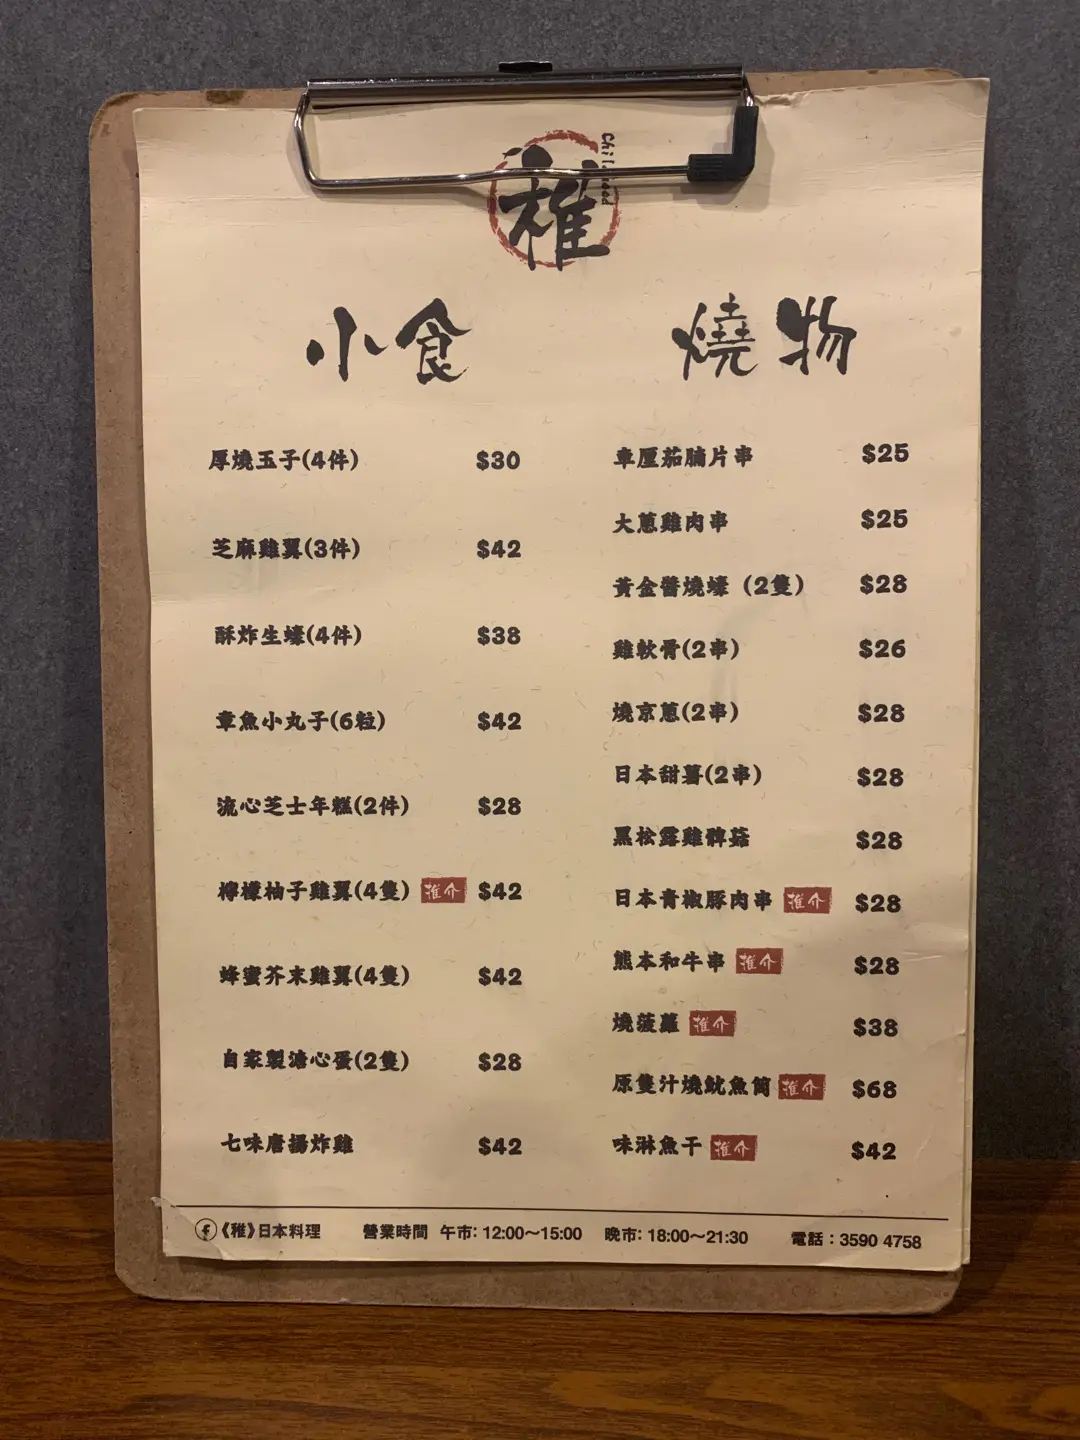 稚
Childhood
小食
厚燒玉子(4件) $30
芝麻雞翼(3件) $42
酥炸生蠔(4件) $38
章魚小丸子(6粒) $42
流心芝士年糕(2件) $28
檸檬柚子雞翼(4隻) 推介 $42
蜂蜜芥末雞翼(4隻) $42
自家製溏心蛋(2隻) $28
七味唐揚炸雞 $42
燒物
車厘茄腩片串 $25
大蔥雞肉串 $25
黃金醬燒蠔 (2隻) $28
雞軟骨(2串) $26
燒京蔥(2串) $28
日本甜薯(2串) $28
黑松露雞髀菇 $28
日本青椒豚肉串 推介 $28
熊本和牛串 推介 $28
燒菠蘿 推介 $38
原隻汁燒魷魚筒 推介 $68
味淋魚干 推介 $42
《稚》日本料理 營業時間 午市: 12:00～15:00 晚市: 18:00～21:30 電話：3590 4758